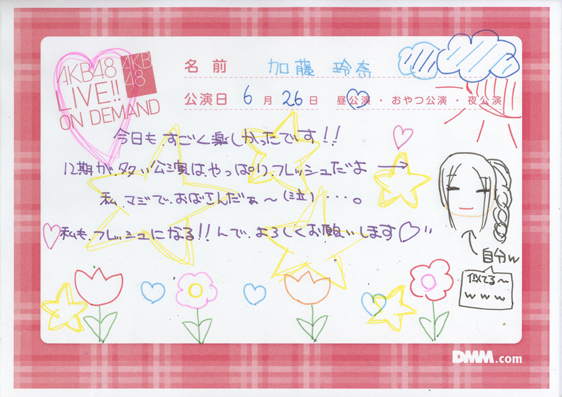 AKB48
LIVE!!
ON DEMAND
AKB
48
名前 加藤 玲奈
公演日 6月26日 昼公演・おやつ公演・夜公演
今日も すごく楽しかったです!!
12期が、多い公演は、やっぱり、フレッシュだよ→
私、マジで、おばさんだぁ〜(泣)・・・。
私も、フレッシュになる!!んで、よろしくお願いします♡"
自分w
似てる〜
www
DMM.com